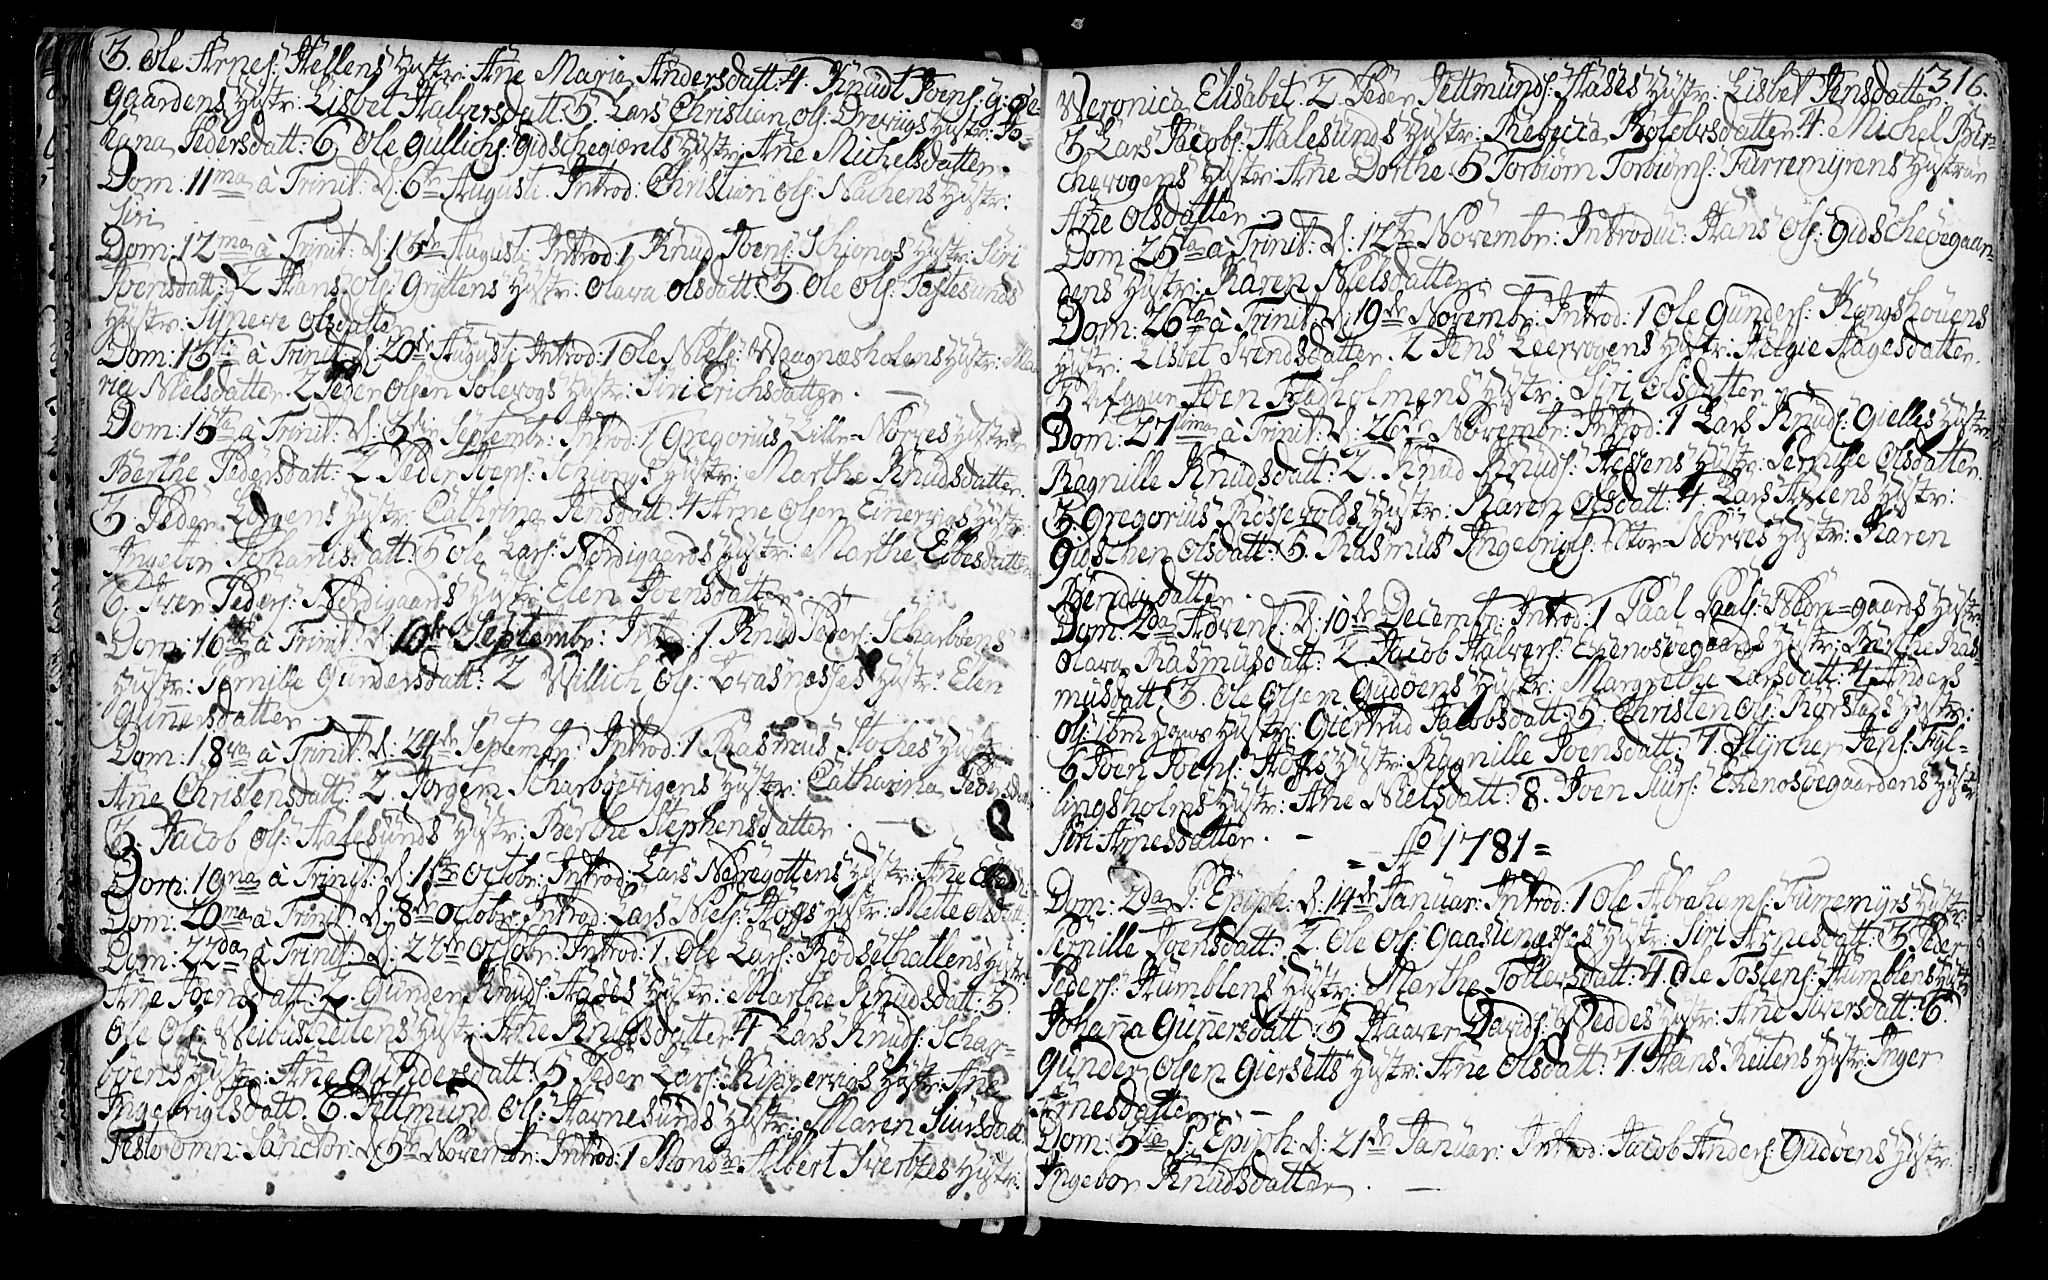 3. Ole Arnes: Hellens hustr: Ane Maria Andersdatt: 4. Knudt Joens: g: Øe-
gaardens hustr: Lisbet Halversdatt: 5. Lars Christian Ols: Drevigs hustr: Jo-
hana Pedersdatt: 6. Ole Gullichs: Gidschegierets hustr: Ane Michelsdatter.
Dom: 11ma à Trinit: d: 6te Augusti Introd: Christian Ols: Nachens hustr:
Siri
Dom: 12ma à Trinit: d: 13de Augusti Introd: 1 Knud Joens: Schiongs hustr: Siri
Joensdatt: 2 Hans Ols: Gryttens hustr: Olava Olsdatt: 3 Ole Ols: Taftesunds
hustr: Synneve Olsdatter
Dom: 13tia à Trinit: d: 20de Augusti Introd: 1 Ole Niels: Waagnæsholens hustr: Ma-
ria Nielsdatter. 2 Peder Olsen Solevogs hustr: Siri Erichsdatter. —
Dom: 15ta à Trinit: d: 3die Septembr: Introd: 1 Gregorius Lille-Nørves hustr:
Berthe Pedersdatt: 2 Peder Joens: Schiongs hustr: Marthe Knudsdatter.
3. Peder Longens hustr: Cathrina Jensdatt: 4 Arne Olsen Einervogs hustr:
Ingebor Johansdatt: 5 Ole Lars: Nordigaards hustr: Marthe Ebbesdatter
6. Iver Peders: Nordigaards hustr: Elen Joensdatter. —
Dom: 16ta à Trinit: d: 10de Septembr: Introd: 1. Knud Peders: Scharbøens
hustr: Pernille Gundersdatt: 2 Willich Ols: Qvasnæsses hustr: Elen
Gunnersdatter —
Dom: 18va à Trinit: d: 24de Septembr: Introd: 1 Rasmus Stoches hustr:
Ane Christensdatt: 2 Jørgen Scharbøevigens hustr: Catharina Pedersdatt
3. Jacob Ols: Aalesunds hustr: Berthe Stephensdatter. —
Dom: 19na à Trinit: d: 1ste Octobr: Introd: Lars Nedregottens hustr: Ane
Dom: 20ma à Trinit: d: 8de Octobr: Introd: Lars Niels: Hogs hustr: Mette Olsdatt:
Dom: 22da à Trinit: d: 22de Octobr: Introd: 1. Ole Lars: Rødsethallens hustr:
Ane Joensdatt: 2. Gunder Knuds: Hases hustr: Marthe Knudsdatt: 3.
Ole Ols: Weibusteitens hustr: Ane Knudsdatter 4 Lars Knuds: Schar-
bøens hustr: Ane Gundersdatt: 5 Peder Lars: Kippervigs hustr: Ane
Ingebrigtsdatt: 6. Pittmund Ols: Havnesunds hustr: Maren Siursdatt
Festo Omn: Sanctor: d: 5te Novembr: Introd: 1 Monsr Albert hustr:
316.
Veronica Elisabet. 2. Peder Pettmunds: Hases hustr: Lisbet Jensdatter.
3 Lars Jacobs: Aalesunds hustr: Rebecca Botolvsdatter 4. Michel Bir-
chevogens hustr: Ane Dorthe 5 Torbiørn Torbiørns: Furremyrens hustrue
Ane Olsdatter. —
Dom: 25ta à Trinit: d: 12te Novembr: Introduc: Hans Ols: Gidscheøegaar-
dens hustr: Karen Nielsdatter. —
Dom: 26ta à Trinit: d: 19de Novembr: Introd: 1 Ole Gunders: Kongshougens
hustr: Lisbet Svendsdatter. 2 Jens Leervogens hustr: Helgie Hagesdatter.
3 Joen Fladholmens hustr: Siri Olsdatter. —
Dom: 27tima à Trinit: d: 26de Novembr: Introd: 1 Lars Knuds: Gielles hustr:
Ragnille Knudsdatt: 2. Knud Knuds: Hessens hustr: Pernille Olsdatter.
3. Gregorius Røssevolds hustr: Karen Olsdatt: 4. Lars Aaens hustr:
Gidschen Olsdatt: 5. Rasmus Ingebrigts: Stor-Nørves hustr: Karen
Bendigsdatter. —
Dom: 2da Advent: d: 10de Decembr: Introd: 1 Paal Paals: Moe-gaards hustr:
Olava Rasmusdatt: 2 Jacob Halvers: Ekenosøegaards hustr: Berthe Ras-
musdatt: 3. Ole Olsen Gudøens hustr: Margrethe Larsdatt: 4 Anders
Ols: hustr: Giertrud Jacobsdatt: 5. Christen Ols: Rørstads hustr:
6 Joen Joens: Hofs hustr: Ragnille Joensdatt: 7. Styrcher Jens: Fyl-
lingsholms hustr: Ane Nielsdatt: 8. Joen Siurs: Ekenosøegaardens hustr:
Siri Arnesdatter. —
= Ao 1781 =
Dom: 2da p: Epiph: d: 14de Januar: Introd: 1 Ole Abrahams: Furremyrs hustr:
Pernille Iversdatt: 2. Ole Ols: Gaasungsæes hustr: Siri Arnesdatt: 3. Peder
Peders: Humblens hustr: Marthe Tollevsdatt: 4. Ole Tostens: Humblens hustr:
Johanna Gunnersdatt: 5 Haaver Davids: Veddes hustr: Ane Siversdatt: 6.
Gunder Olsen Giersetts hustr: Ane Olsdatt: 7. Hans Reitens hustr: Inger
Arnesdatter. —
Dom: 3tia p: Epiph: d: 21de Januar: Introd: Jacob Anders: Gudøens hustr:
Ingebor Knudsdatter. —